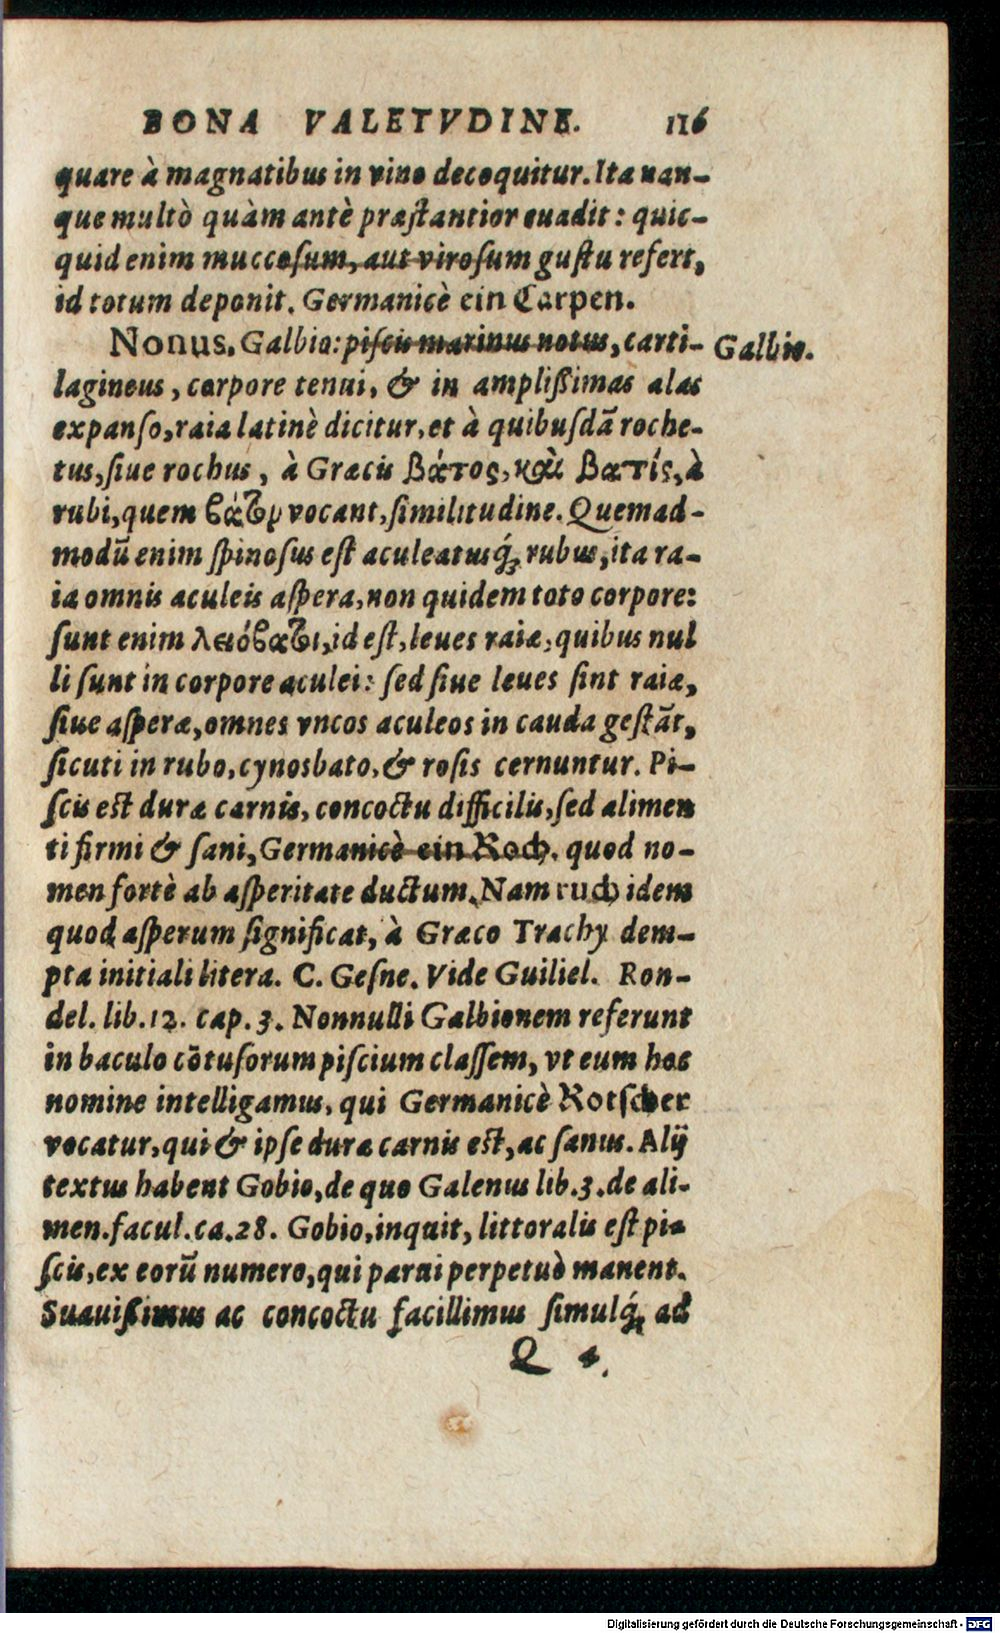 BONA VALETVDINE. 116
quare à magnatibus in vino decoquitur. Ita nan-
que multò quàm antè præstantior euadit: quic-
quid enim muccosum, aut virosum gustu refert,
id totum deponit. Germanicè ein Carpen.
Nonus. Galbio: piscis marinus notus, carti-
Galbio.
lagineus, corpore tenui, & in amplißimas alas
expanso, raia latinè dicitur, et à quibusdā roche-
tus, siue rochus, à Græcis βάτος, καὶ βατίς, à
rubi, quem βάτον vocant, similitudine. Quemad-
modū enim spinosus est aculeatusq́; rubus, ita ra-
ia omnis aculeis aspera, non quidem toto corpore:
sunt enim λειόβατοι, id est, leues raiæ, quibus nul
li sunt in corpore aculei: sed siue leues sint raiæ,
siue asperæ, omnes vncos aculeos in cauda gestāt,
sicuti in rubo, cynosbato, & rosis cernuntur. Pi-
scis est duræ carnis, concoctu difficilis, sed alimen
ti firmi & sani, Germanicè ein Roch. quod no-
men fortè ab asperitate ductum. Nam ruch idem
quod asperum significat, à Græco Trachy dem-
pta initiali litera. C. Gesne. Vide Guiliel. Ron-
del. lib. 12. cap. 3. Nonnulli Galbionem referunt
in baculo cōtusorum piscium classem, vt eum hoc
nomine intelligamus, qui Germanicè Rotscher
vocatur, qui & ipse duræ carnis est, ac sanus. Alij
textus habent Gobio, de quo Galenus lib. 3. de ali-
men. facul. ca. 28. Gobio, inquit, littoralis est pi-
scis, ex eorū numero, qui parui perpetuò manent.
Suauißimus ac concoctu facillimus simulq́; ad
Q 4
Digitalisierung gefördert durch die Deutsche Forschungsgemeinschaft - DFG